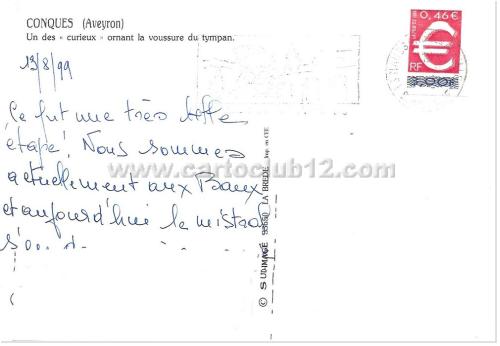 CONQUES (Aveyron)
Un des « curieux » ornant la voussure du tympan.
0,46€
RF
3,00F
13/8/99
Ce fut une très belle
étape! Nous sommes
actuellement aux Baux
et aujourd'hui le mistral
www.cartoclub12.com
© SUDIMAGE 33650 LA BREDE Imp. en CEE